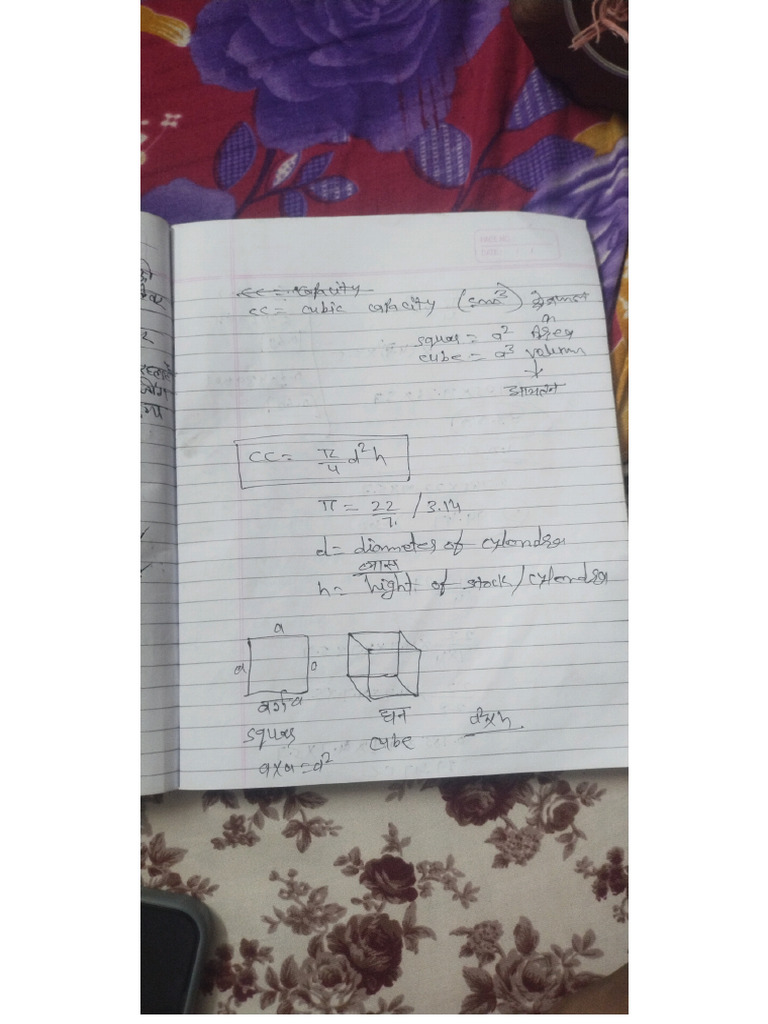 cc = capacity
cc = cubic capacity (smo³) क्षेत्रफल
squar = a² Area
cube = a³ volumn
आयतन
cc = π/4 d² h
π = 22/7 / 3.14
d = diameter of cylender
व्यास
h = hight of stock/cylender
a
a a
वर्ग a
squar
a x a = a²
घन
cube
d² x h